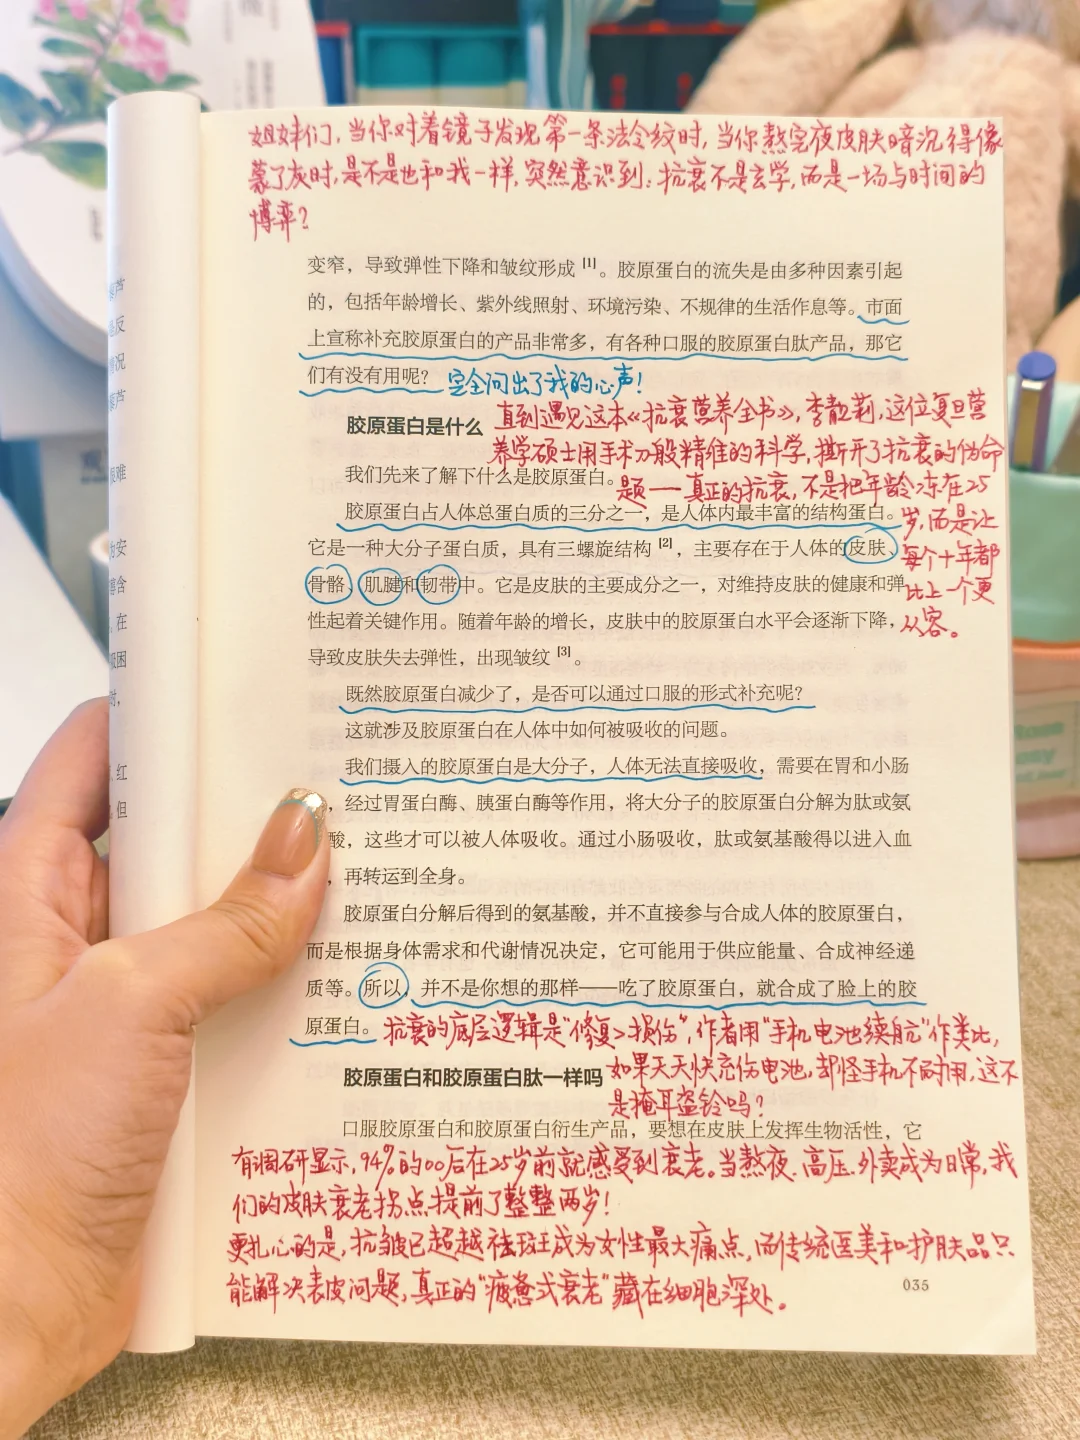 姐妹们，当你对着镜子发现第一条法令纹时，当你熬完夜皮肤暗沉得像
蒙了灰时，是不是也和我一样，突然意识到：抗衰不是玄学，而是一场与时间的
博弈？
变窄，导致弹性下降和皱纹形成[1]。胶原蛋白的流失是由多种因素引起
的，包括年龄增长、紫外线照射、环境污染、不规律的生活作息等。市面
上宣称补充胶原蛋白的产品非常多，有各种口服的胶原蛋白肽产品，那它
们有没有用呢？
完全问出了我的心声！
胶原蛋白是什么
直到遇见这本《抗衰营养全书》，李靓莉，这位复旦营
养学硕士用手术刀般精准的科学，撕开了抗衰的伪命
题——真正的抗衰，不是把年龄冻在25
岁，而是让
每个十年都
比上一个更
从容。
我们先来了解下什么是胶原蛋白。
胶原蛋白占人体总蛋白质的三分之一，是人体内最丰富的结构蛋白。
它是一种大分子蛋白质，具有三螺旋结构[2]，主要存在于人体的皮肤、
骨骼、肌腱和韧带中。它是皮肤的主要成分之一，对维持皮肤的健康和弹
性起着关键作用。随着年龄的增长，皮肤中的胶原蛋白水平会逐渐下降，
导致皮肤失去弹性，出现皱纹[3]。
既然胶原蛋白减少了，是否可以通过口服的形式补充呢？
这就涉及胶原蛋白在人体中如何被吸收的问题。
我们摄入的胶原蛋白是大分子，人体无法直接吸收，需要在胃和小肠
，经过胃蛋白酶、胰蛋白酶等作用，将大分子的胶原蛋白分解为肽或氨
酸，这些才可以被人体吸收。通过小肠吸收，肽或氨基酸得以进入血
，再转运到全身。
胶原蛋白分解后得到的氨基酸，并不直接参与合成人体的胶原蛋白，
而是根据身体需求和代谢情况决定，它可能用于供应能量、合成神经递
质等。所以，并不是你想的那样——吃了胶原蛋白，就合成了脸上的胶
原蛋白。
抗衰的底层逻辑是“修复>损伤”，作者用“手机电池续航”作类比，
如果天天快充伤电池，却怪手机不耐用，这不
是掩耳盗铃吗？
胶原蛋白和胶原蛋白肽一样吗
口服胶原蛋白和胶原蛋白衍生产品，要想在皮肤上发挥生物活性，它
有调研显示，94%的00后在25岁前就感受到衰老。当熬夜、高压、外卖成为日常，我
们的皮肤衰老拐点提前了整整两岁！
更扎心的是，抗皱已超越祛斑成为女性最大痛点，而传统医美和护肤品只
能解决表皮问题，真正的“疲惫式衰老”藏在细胞深处。
035